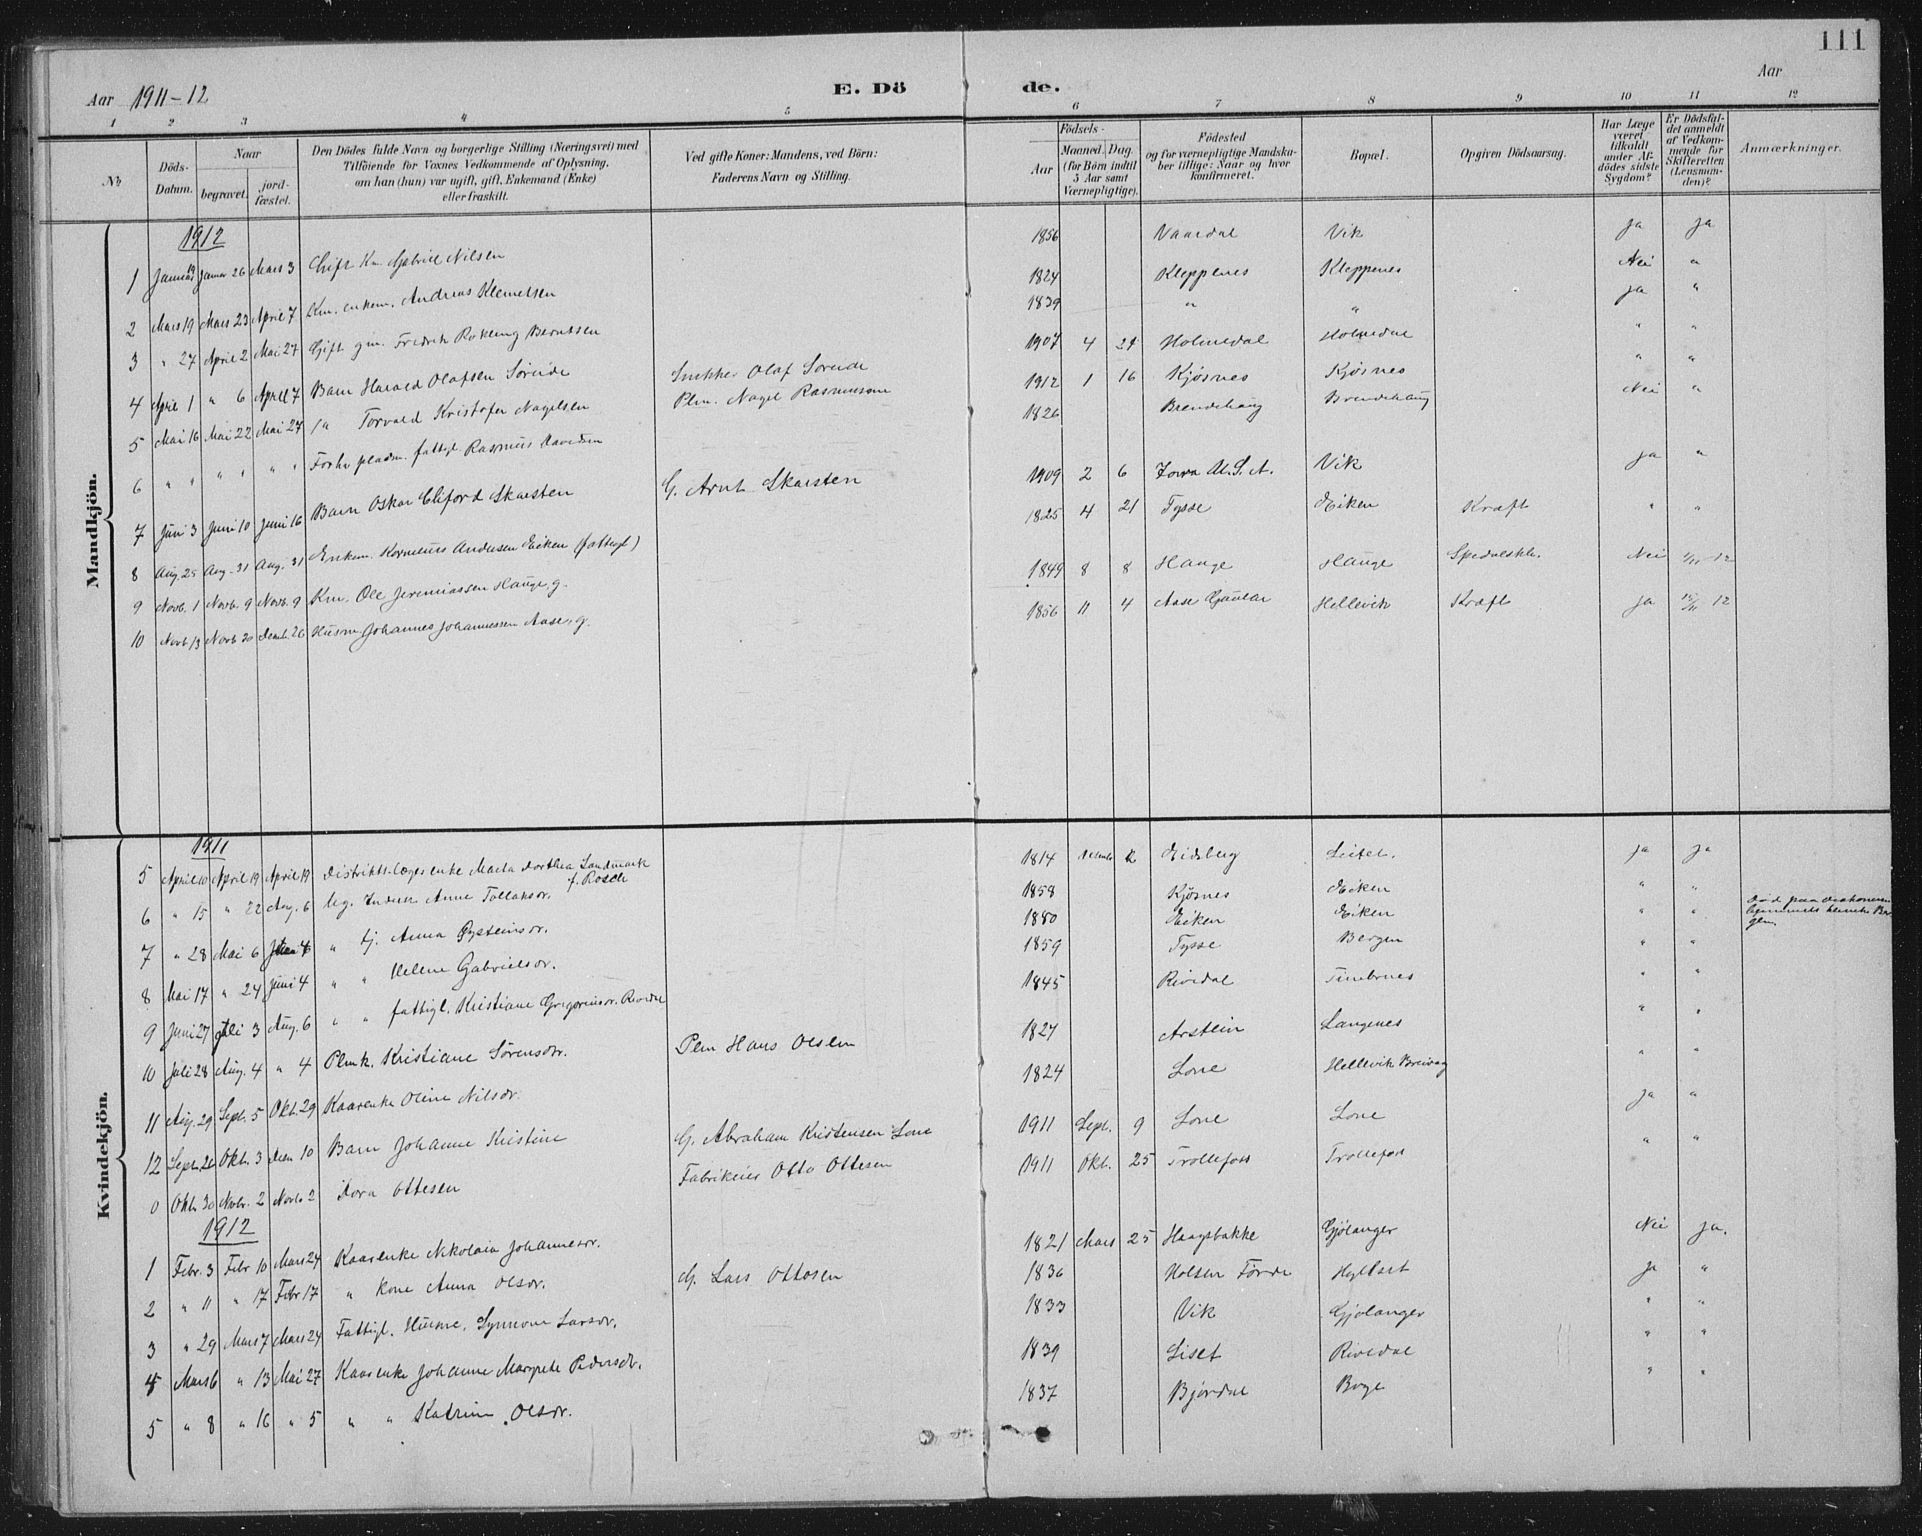 111
Aar 1911-12
E. Dö
de.
Aar
1 2 3 4 5 6 7 8 9 10 11 12
No.
Döds-Datum.
Naar
begravet.
jord-fæstet.
Den Dödes fulde Navn og borgerlige Stilling (Næringsvei) med
Tilföiende for Voxnes Vedkommende af Oplysning,
om han (hun) var ugift, gift, Enkemand (Enke)
eller fraskilt.
Ved gifte Koner: Mandens, ved Börn:
Faderens Navn og Stilling.
Födsels-
Aar
Maaned. Dag.
(for Börn indtil
5 Aar samt
Værnepligtige).
Födested
og for værnepligtige Mandska-
ber tillige: Naar og hvor
konfirmeret.
Bopæl.
Opgiven Dödsaarsag.
Har Læge
været
tilkaldt
under Af-
dödes sidste
Sygdom?
Er Dödsfal-
det anmeldt
af Vedkom-
mende for
Skifteretten
(Lensman-
den)?
Anmærkninger.
Mandkjön.
1912
1 Januar 19 Januar 26 Mars 3 Gift Km. Gabriel Nilsen 1856 Vaardal Vik ja ja
2 Mars 19 Mars 23 April 7 Km. enkem. Andreas Klemetsen 1824 Kleppenes Kleppenes Nei "
3 " 27 April 2 Mai 27 Gift gm. Fredrik Berntsen 1839 " " ja "
4 April 1 " 6 April 7 Barn Harald Olafsen Søreide Snekker Olaf Søreide 1907 4 29 Holmedal Holmedal " "
5 Mai 16 Mai 22 Mai 27 " Torvald Kristofer Nagelsen Plm. Nagel Rasmussen 1912 1 16 Kjøsnes Kjøsnes " "
6 " " " " " " Forhv pladsm. fattigl. Rasmus Davidsen 1826 Brendehaug Brendehaug Nei "
7 Juni 3 Juni 10 Juni 16 Barn Oskar Cliford Skarsten G. Arnt Skarsten 1909 2 6 Iowa U.S.A. Vik ja "
8 Aug. 25 Aug. 31 Aug. 31 Enkem. Kornelius Andersen Eiken (fattigl) 1825 4 21 Tysse Eiken Kræft " "
9 Novb. 1 Novb. 9 Novb. 9 Km. Ole Jeremiassen Hauge, g. 1849 8 8 Hauge Hauge Spedalskh. Nei 12
10 Novb 13 Novb 20 Decmb. 26 Husm Johannes Johannessen Aase, g. 1856 11 4 Aase Gaular Hellevik Kræft ja 12
Kvindekjön.
1911
5 April 10 April 19 April 19 Distriktslægeenke Marta Dorthea Landmark f. Rosch 1814 Decmb 12 Eidsberg Leitet. ja ja
6 " 15 " 22 Aug. 6 Ug. Inderst Anne Tollaksdr. 1858 Kjøsnes Eiken " "
7 " 28 Mai 6 Juni 4 " tj. Anna Øysteinsdr. 1880 Eiken Eiken " "
8 Mai 17 " 24 Juni 4 " " Helene Gabrielsdr. 1859 Tysse Bergen " " Død paa
9 Juni 27 Juli 3 Aug. 6 " " fattigl. Kristiane Gregoriusdr. Rivedal 1845 Rivedal " "
10 Juli 28 Aug. 4 " 4 Plmk. Kristiane Sørensdr. Plm Hans Olsen 1827 Arstein Langenes " "
11 Aug. 29 Sept. 5 Okt. 29 Kaarenke Oline Nilsdr. 1824 Lone Hellevik Breivag " "
12 Sept. 26 Okt. 3 Decm 10 Barn Johanne Kristine G. Abraham Kristensen Lone 1911 Sept. 9 Lone Lone ja "
0 Okt. 30 Novbr. 2 Novb 2 Dora Ottesen Fabrikeier Otto Ottesen 1911 Okt. 25 Trollefoss Trollefoss " "
1912
1 Febr. 3 Febr 10 Mars 24 Kaarenke Nikolaia Johannesdr. 1821 Mars 25 Haugsbakke Gjølanger Nei ja.
2 " 11 " 17 Febr 17 " kone Anna Olsdr. G. Lars Ottosen 1836 Holsen Førde Hyllset ja "
3 " 29 Mars 7 Mars 24 Fattigl. Husme. Synnøve Larsdr. 1833 Vik Gjølanger " "
4 Mars 6 " 13 Mai 27 Kaarenke Johanne Margrete Pedersdr. 1839 Liset Rivedal " "
5 " 8 " 16 " 5 " " Katrine Olsdr. 1837 Bjørdal Boge " "